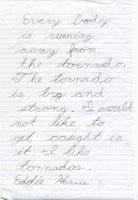 Every body
is running
away from
the tornado.
The tornado
is big and
strong. I would
not like to
get caught in
it. I like
tornados.
Eddie